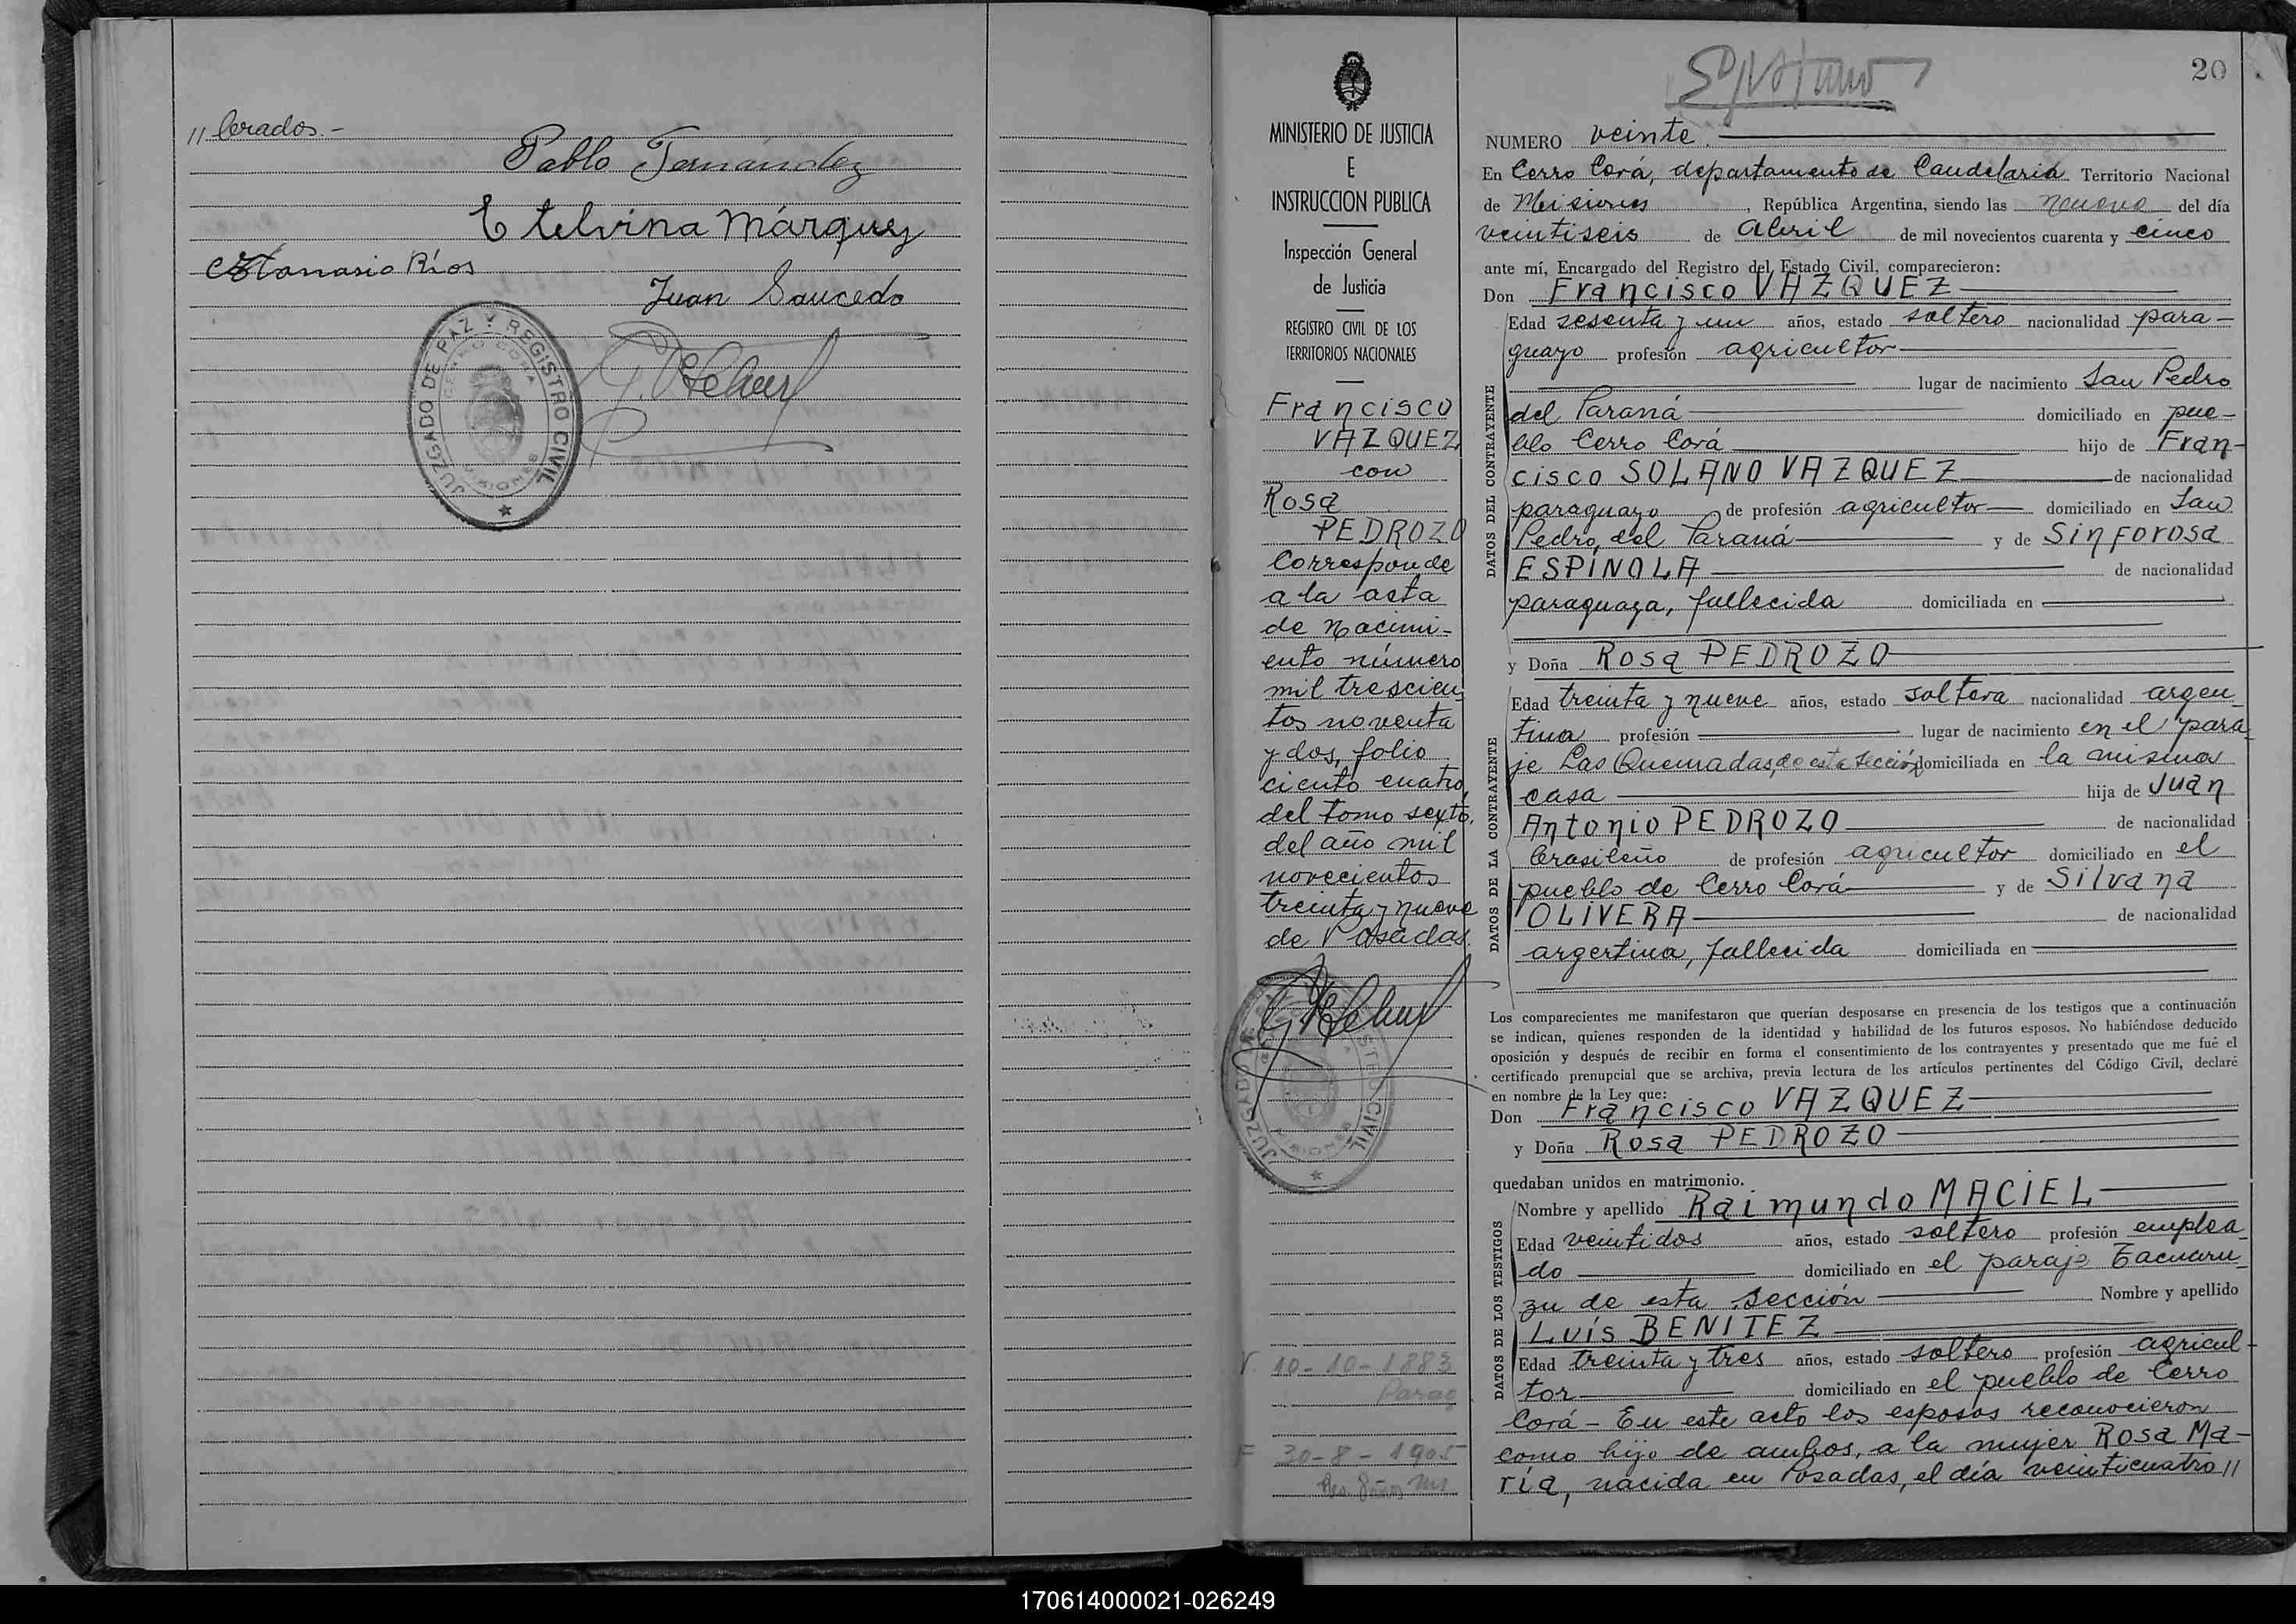 // brados.-
Pablo Fernández
Etelvina Márquez
Atanasio Ríos
Juan Saucedo
JUZGADO DE PAZ Y REGISTRO CIVIL
CERRO CORA
MISIONES
20
MINISTERIO DE JUSTICIA
E
INSTRUCCION PUBLICA
Inspección General
de Justicia
REGISTRO CIVIL DE LOS
TERRITORIOS NACIONALES
Francisco
VAZQUEZ
con
Rosa
PEDROZO
Corresponde
a la acta
de nacimi-
ento número
mil trescien-
tos noventa
y dos, folio
ciento cuatro,
del tomo sexto,
del año mil
novecientos
treinta y nueve
de Posadas.
JUZGADO DE PAZ Y REGISTRO CIVIL
MISIONES
10-10-1883
Parag
30-8-1905
NUMERO veinte.
En Cerro Corá, departamento de Candelaria Territorio Nacional
de Misiones, República Argentina, siendo las nueve del día
veintiseis de Abril de mil novecientos cuarenta y cinco
ante mí, Encargado del Registro del Estado Civil, comparecieron:
Don Francisco VAZQUEZ
DATOS DEL CONTRAYENTE
Edad sesenta y un años, estado soltero nacionalidad para-
guayo profesión agricultor
lugar de nacimiento San Pedro
del Paraná domiciliado en pue-
blo Cerro Corá hijo de Fran-
cisco SOLANO VAZQUEZ de nacionalidad
paraguayo de profesión agricultor domiciliado en San
Pedro del Paraná y de Sinforosa
ESPÍNOLA de nacionalidad
paraguaya, fallecida domiciliada en
y Doña Rosa PEDROZO
DATOS DE LA CONTRAYENTE
Edad treinta y nueve años, estado soltera nacionalidad argen-
tina profesión lugar de nacimiento en el para-
je Las Quemadas, de esta sección domiciliada en la misma
casa hija de Juan
Antonio PEDROZO de nacionalidad
brasileño de profesión agricultor domiciliado en el
pueblo de Cerro Corá y de Silvana
OLIVERA de nacionalidad
argentina, fallecida domiciliada en
Los comparecientes me manifestaron que querían desposarse en presencia de los testigos que a continuación
se indican, quienes responden de la identidad y habilidad de los futuros esposos. No habiéndose deducido
oposición y después de recibir en forma el consentimiento de los contrayentes y presentado que me fué el
certificado prenupcial que se archiva, previa lectura de los artículos pertinentes del Código Civil, declaré
en nombre de la Ley que:
Don Francisco VAZQUEZ
y Doña Rosa PEDROZO
quedaban unidos en matrimonio.
DATOS DE LOS TESTIGOS
Nombre y apellido Raimundo MACIEL
Edad veintidos años, estado soltero profesión emplea-
do domiciliado en el paraje Tacuaru-
zu de esta sección Nombre y apellido
Luís BENITEZ
Edad treinta y tres años, estado soltero profesión agricul-
tor domiciliado en el pueblo de Cerro
Corá - En este acto los esposos reconocieron
como hijo de ambos, a la mujer Rosa Ma-
ría, nacida en Posadas, el día veinticuatro //
170614000021-026249